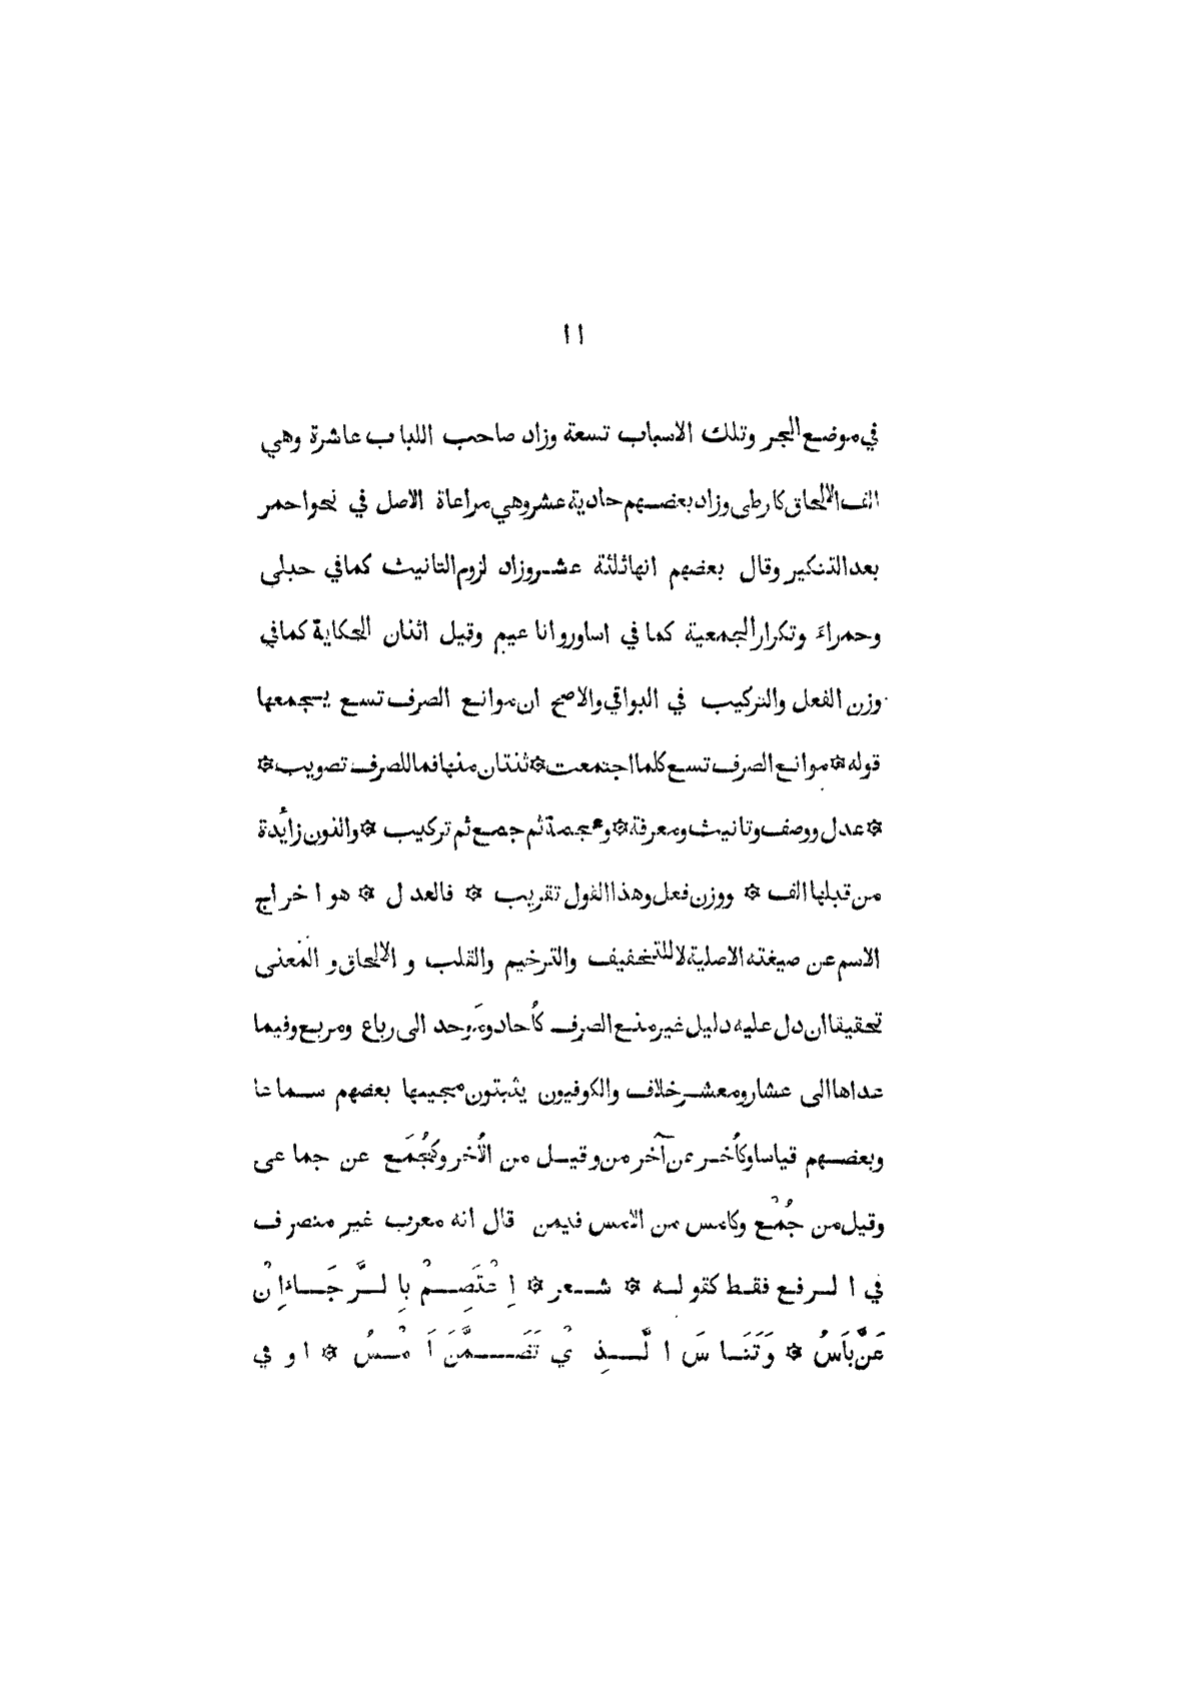 ١١
في موضع الجر وتلك الاسباب تسعة وزاد صاحب اللباب عاشرة وهي
الف الالحاق كارطى وزاد بعضهم حادية عشر وهي مراعاة الاصل في نحو احمر
بعد التنكير وقال بعضهم انها ثلثة عشر وزاد لزوم التانيث كما في حبلى
وحمراءَ وتكرار الجمعية كما في اساور واناعيم وقيل اثنان الحكاية كما في
وزن الفعل والتركيب في البواقي والاصح ان موانع الصرف تسع يجمعها
قوله ۞ موانع الصرف تسع كلما اجتمعت ۞ ثنتان منها فما للصرف تصويب ۞
۞ عدل ووصف وتانيث ومعرفة ۞ وعجمة ثم جمع ثم تركيب ۞ والنون زائدة
من قبلها الف ۞ ووزن فعل وهذا القول تقريب ۞ فالعدل ۞ هو اخراج
الاسم عن صيغته الاصلية لا للتخفيف والترخيم والقلب و الالحاق و المعنى
تحقيقا ان دل عليه دليل غير منع الصرف كاُحاد ومَوحد الى رباع ومربع وفيما
عداها الى عشار ومعشر خلاف والكوفيون يثبتون مجيىها بعضهم سماعا
وبعضهم قياسا وكاُخر عن آخر من وقيل من الاُخر وكجُمَع عن جماعى
وقيل من جُمْع وكامس من الامس فيمن قال انه معرب غير منصرف
في الرفع فقط كقوله ۞ شعر ۞ اِعْتَصِمْ بِالرَّجَاءِ اِنْ
عَنَّ بَاَسُ ۞ وَتَنَاسَ الَّذِيْ تَضَمَّنَ اَمْسُ ۞ او في